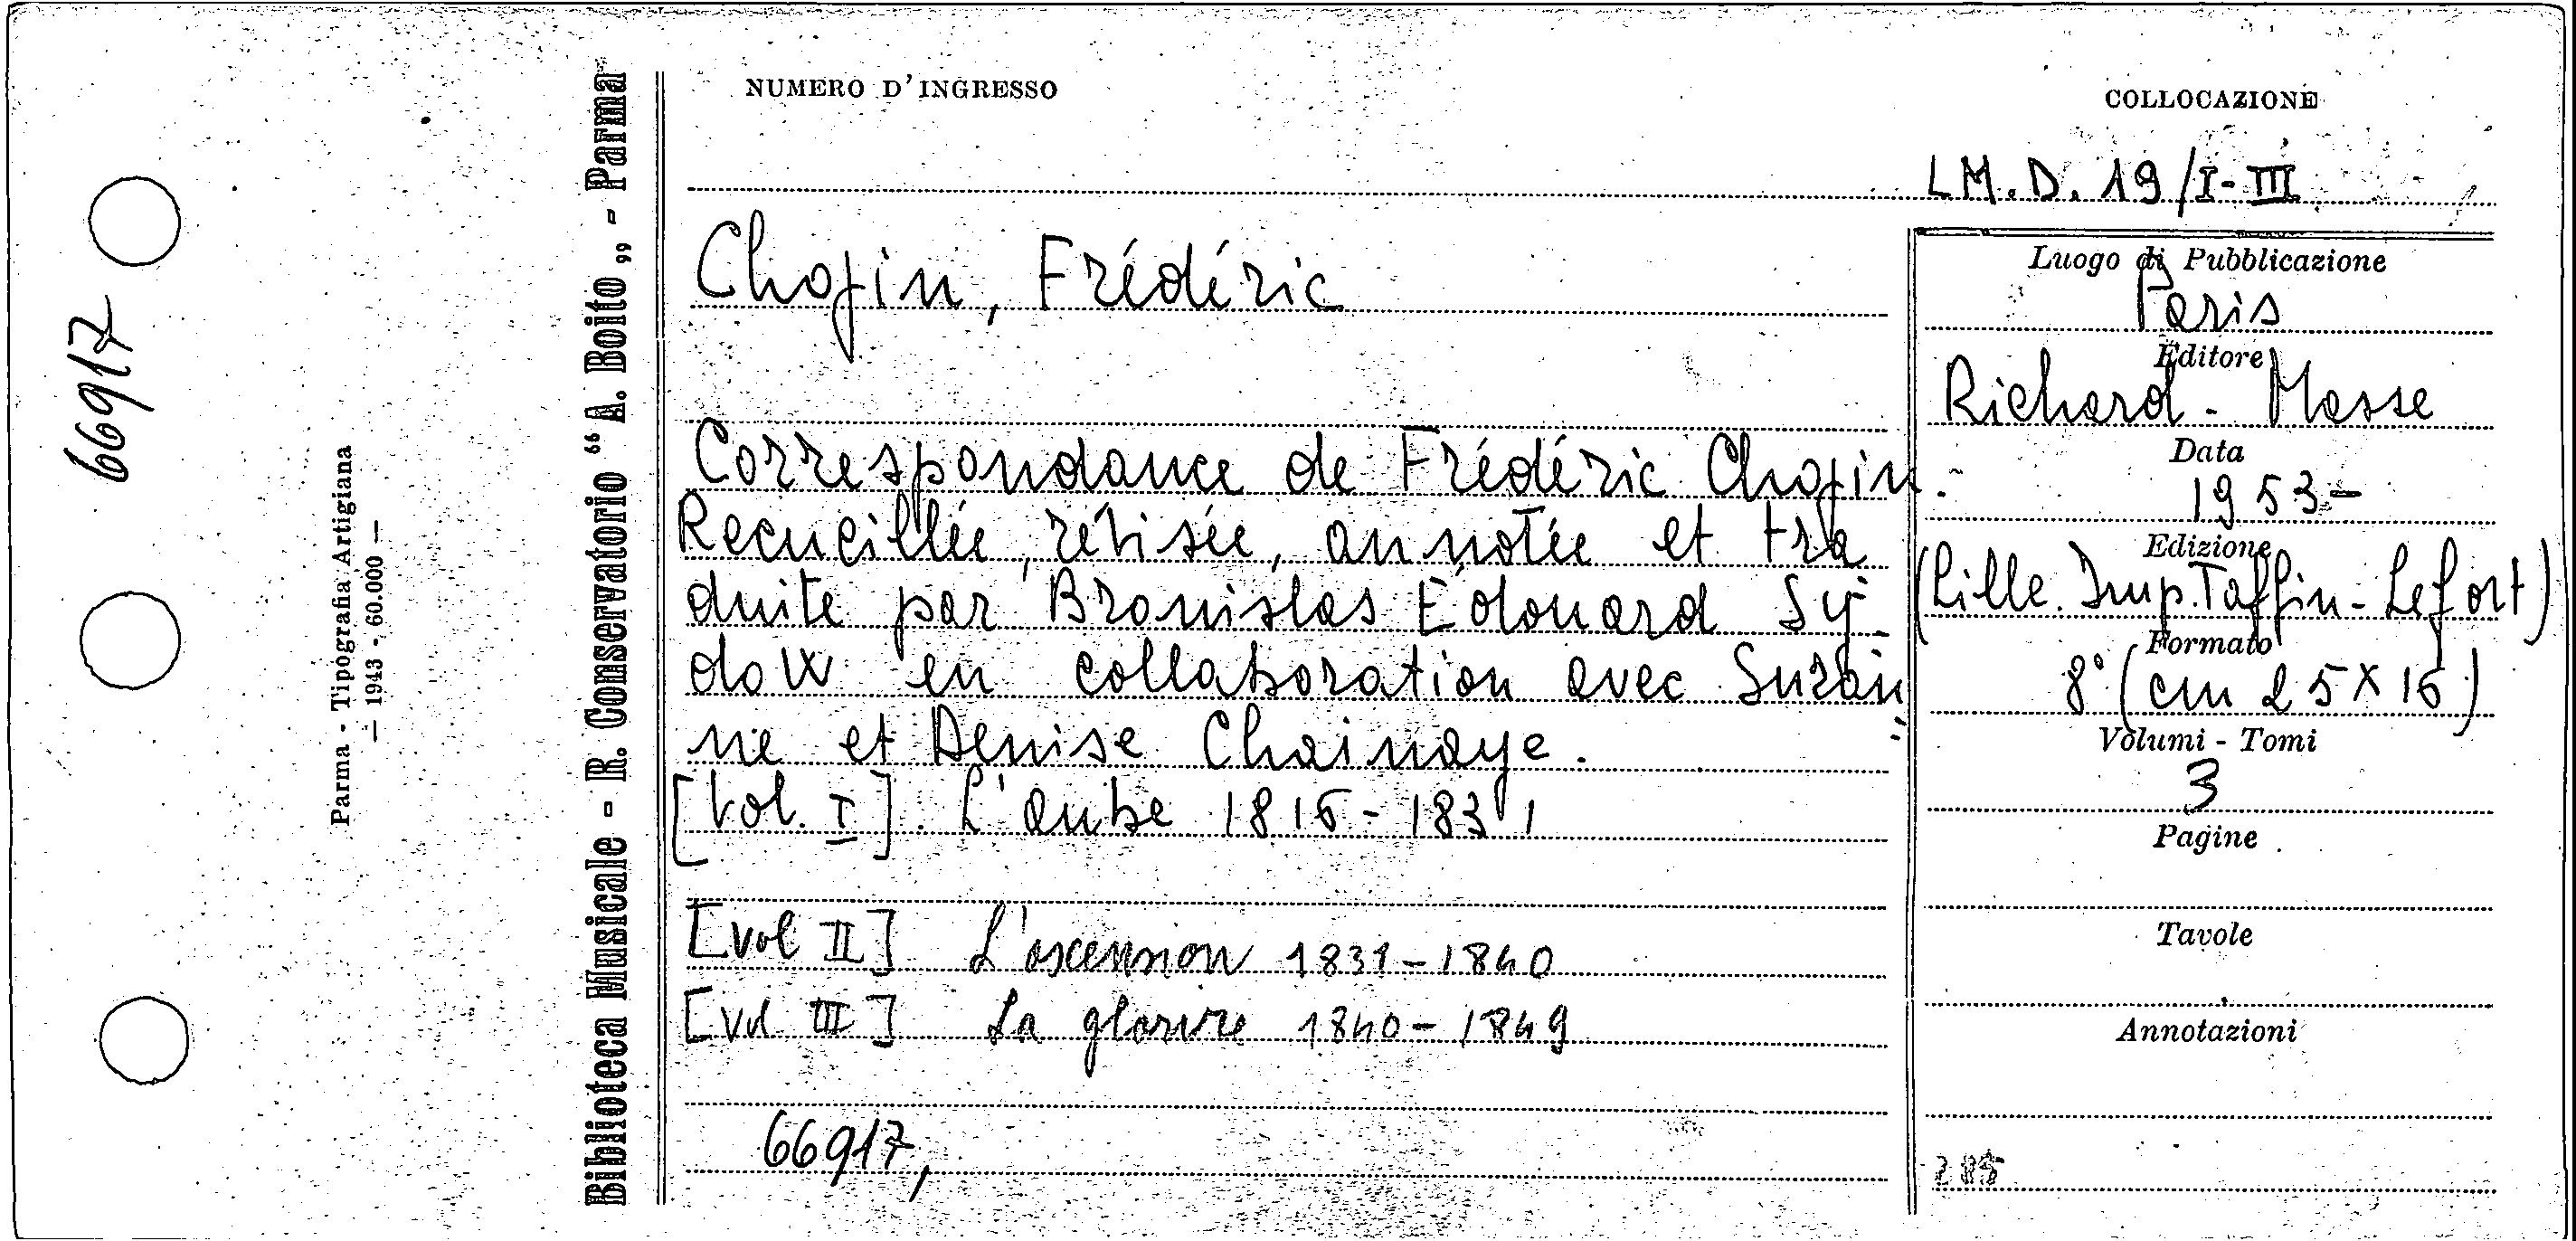 66917
Parma - Tipografia Artigiana
— 1943 - 60.000 —
Biblioteca Musicale - R. Conservatorio “A. Boito„ - Parma
NUMERO D'INGRESSO
COLLOCAZIONE
LM.D. 19/I-III
Chopin, Frédéric
Correspondance de Frédéric Chopin.
Recueillée, révisée, annotée et tra
duite par Bronislas Édouard Sy-
dow en collaboration avec Suzan=
ne et Denise Chainaye.
[Vol. I]. L'aube 1816-1831
[vol II] L'ascension 1831-1840
[vol III] La gloire 1840-1849
66917,
Luogo di Pubblicazione
Paris
Editore
Richard-Masse
Data
1953-
Edizione
(Lille. Imp. Taffin-Lefort)
Formato
8° (cm 25x16)
Volumi - Tomi
3
Pagine
Tavole
Annotazioni
285